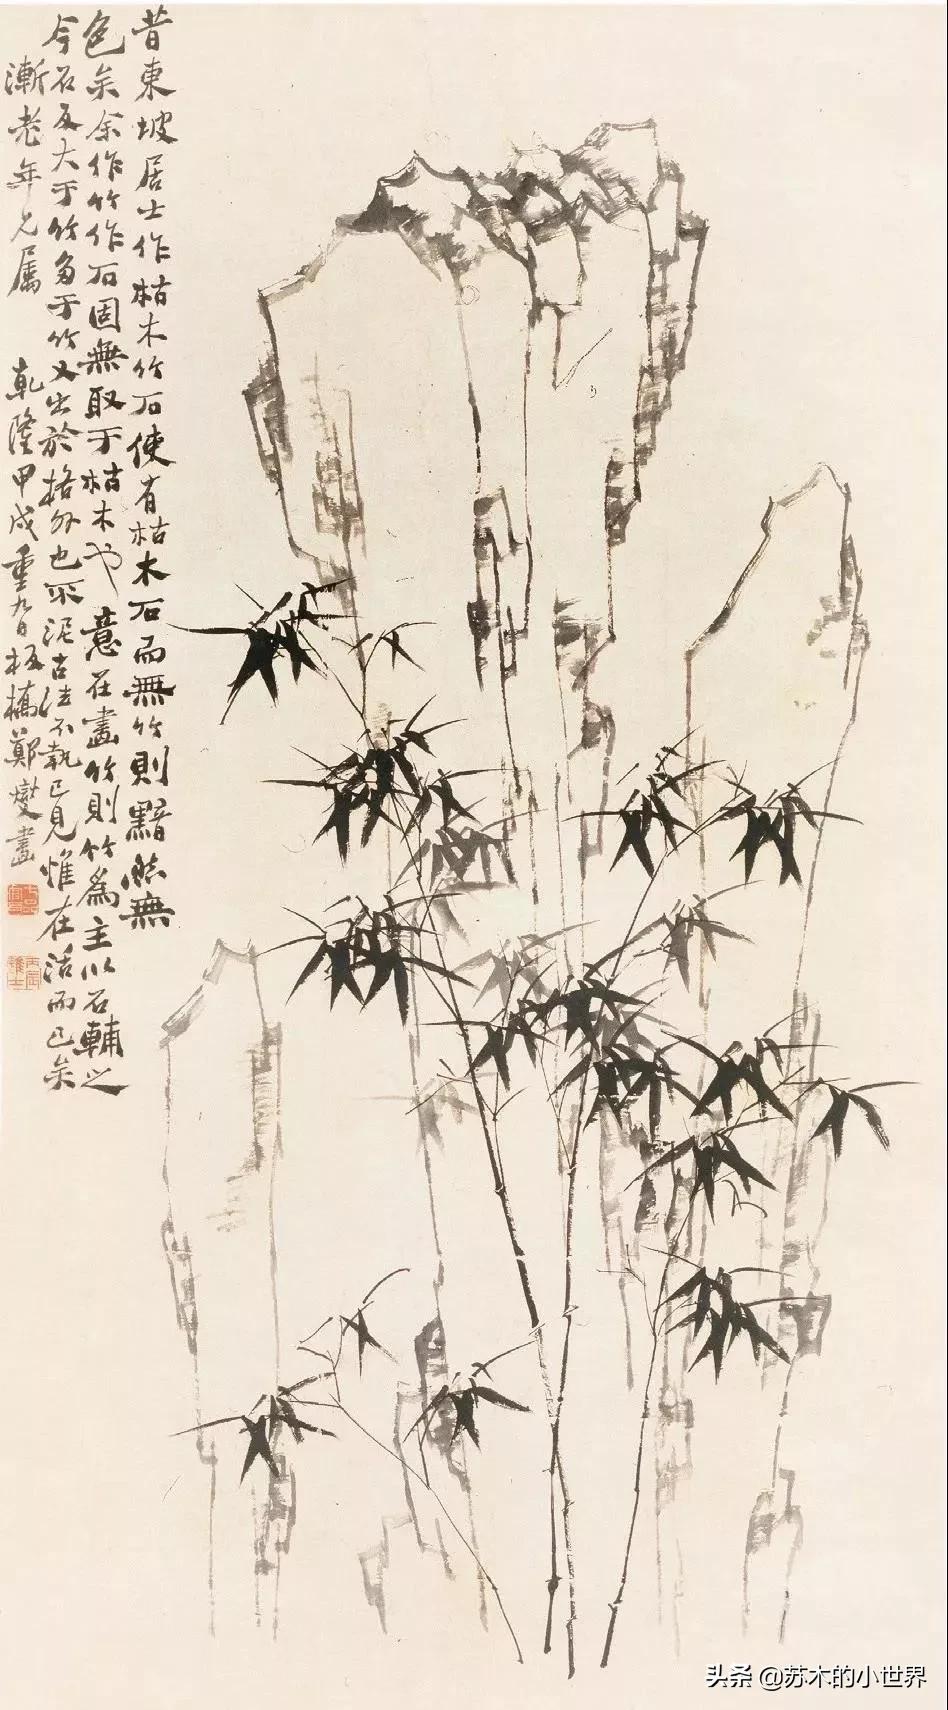 昔東坡居士作枯木竹石使有枯木石而無竹則黯然無
色矣余作竹作石固無取于枯木也意在畫竹則竹為主以石輔之
今石反大于竹多于竹又出於格外也不泥古法不執己見惟在活而已矣
漸老年兄屬 乾隆甲戌重九日板橋鄭燮畫
头条 @苏木的小世界